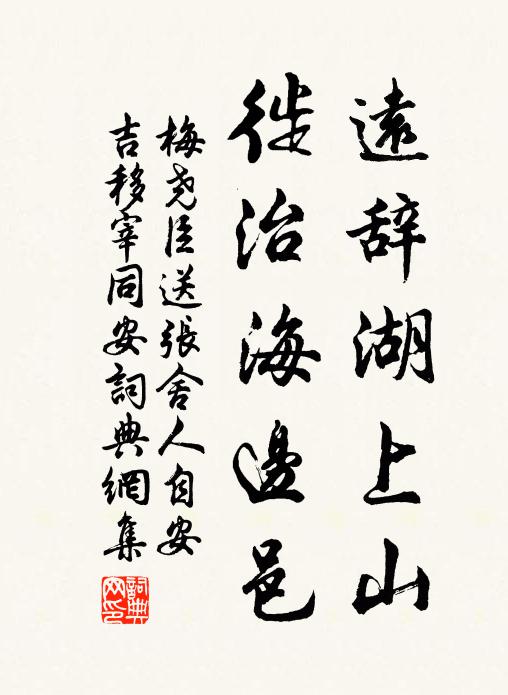 遠辞湖上山
徙治海邊邑
梅堯臣送張舍人自安
吉移宰同安詞典網集
詞典
网印